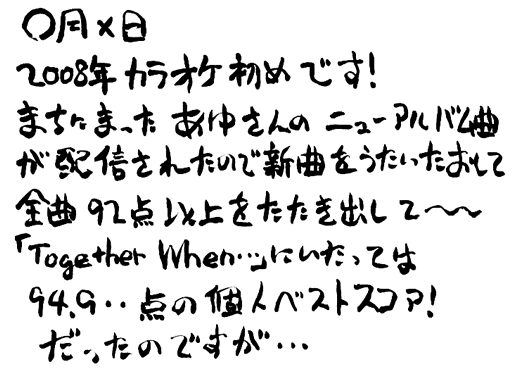 〇月×日
2008年カラオケ初めです!
まちにまったあゆさんのニューアルバム曲
が配信されたので新曲をうたいたおして
全曲92点以上をたたき出して〜〜
「Together When…」にいたっては
94.9‥点の個人ベストスコア!
だったのですが…